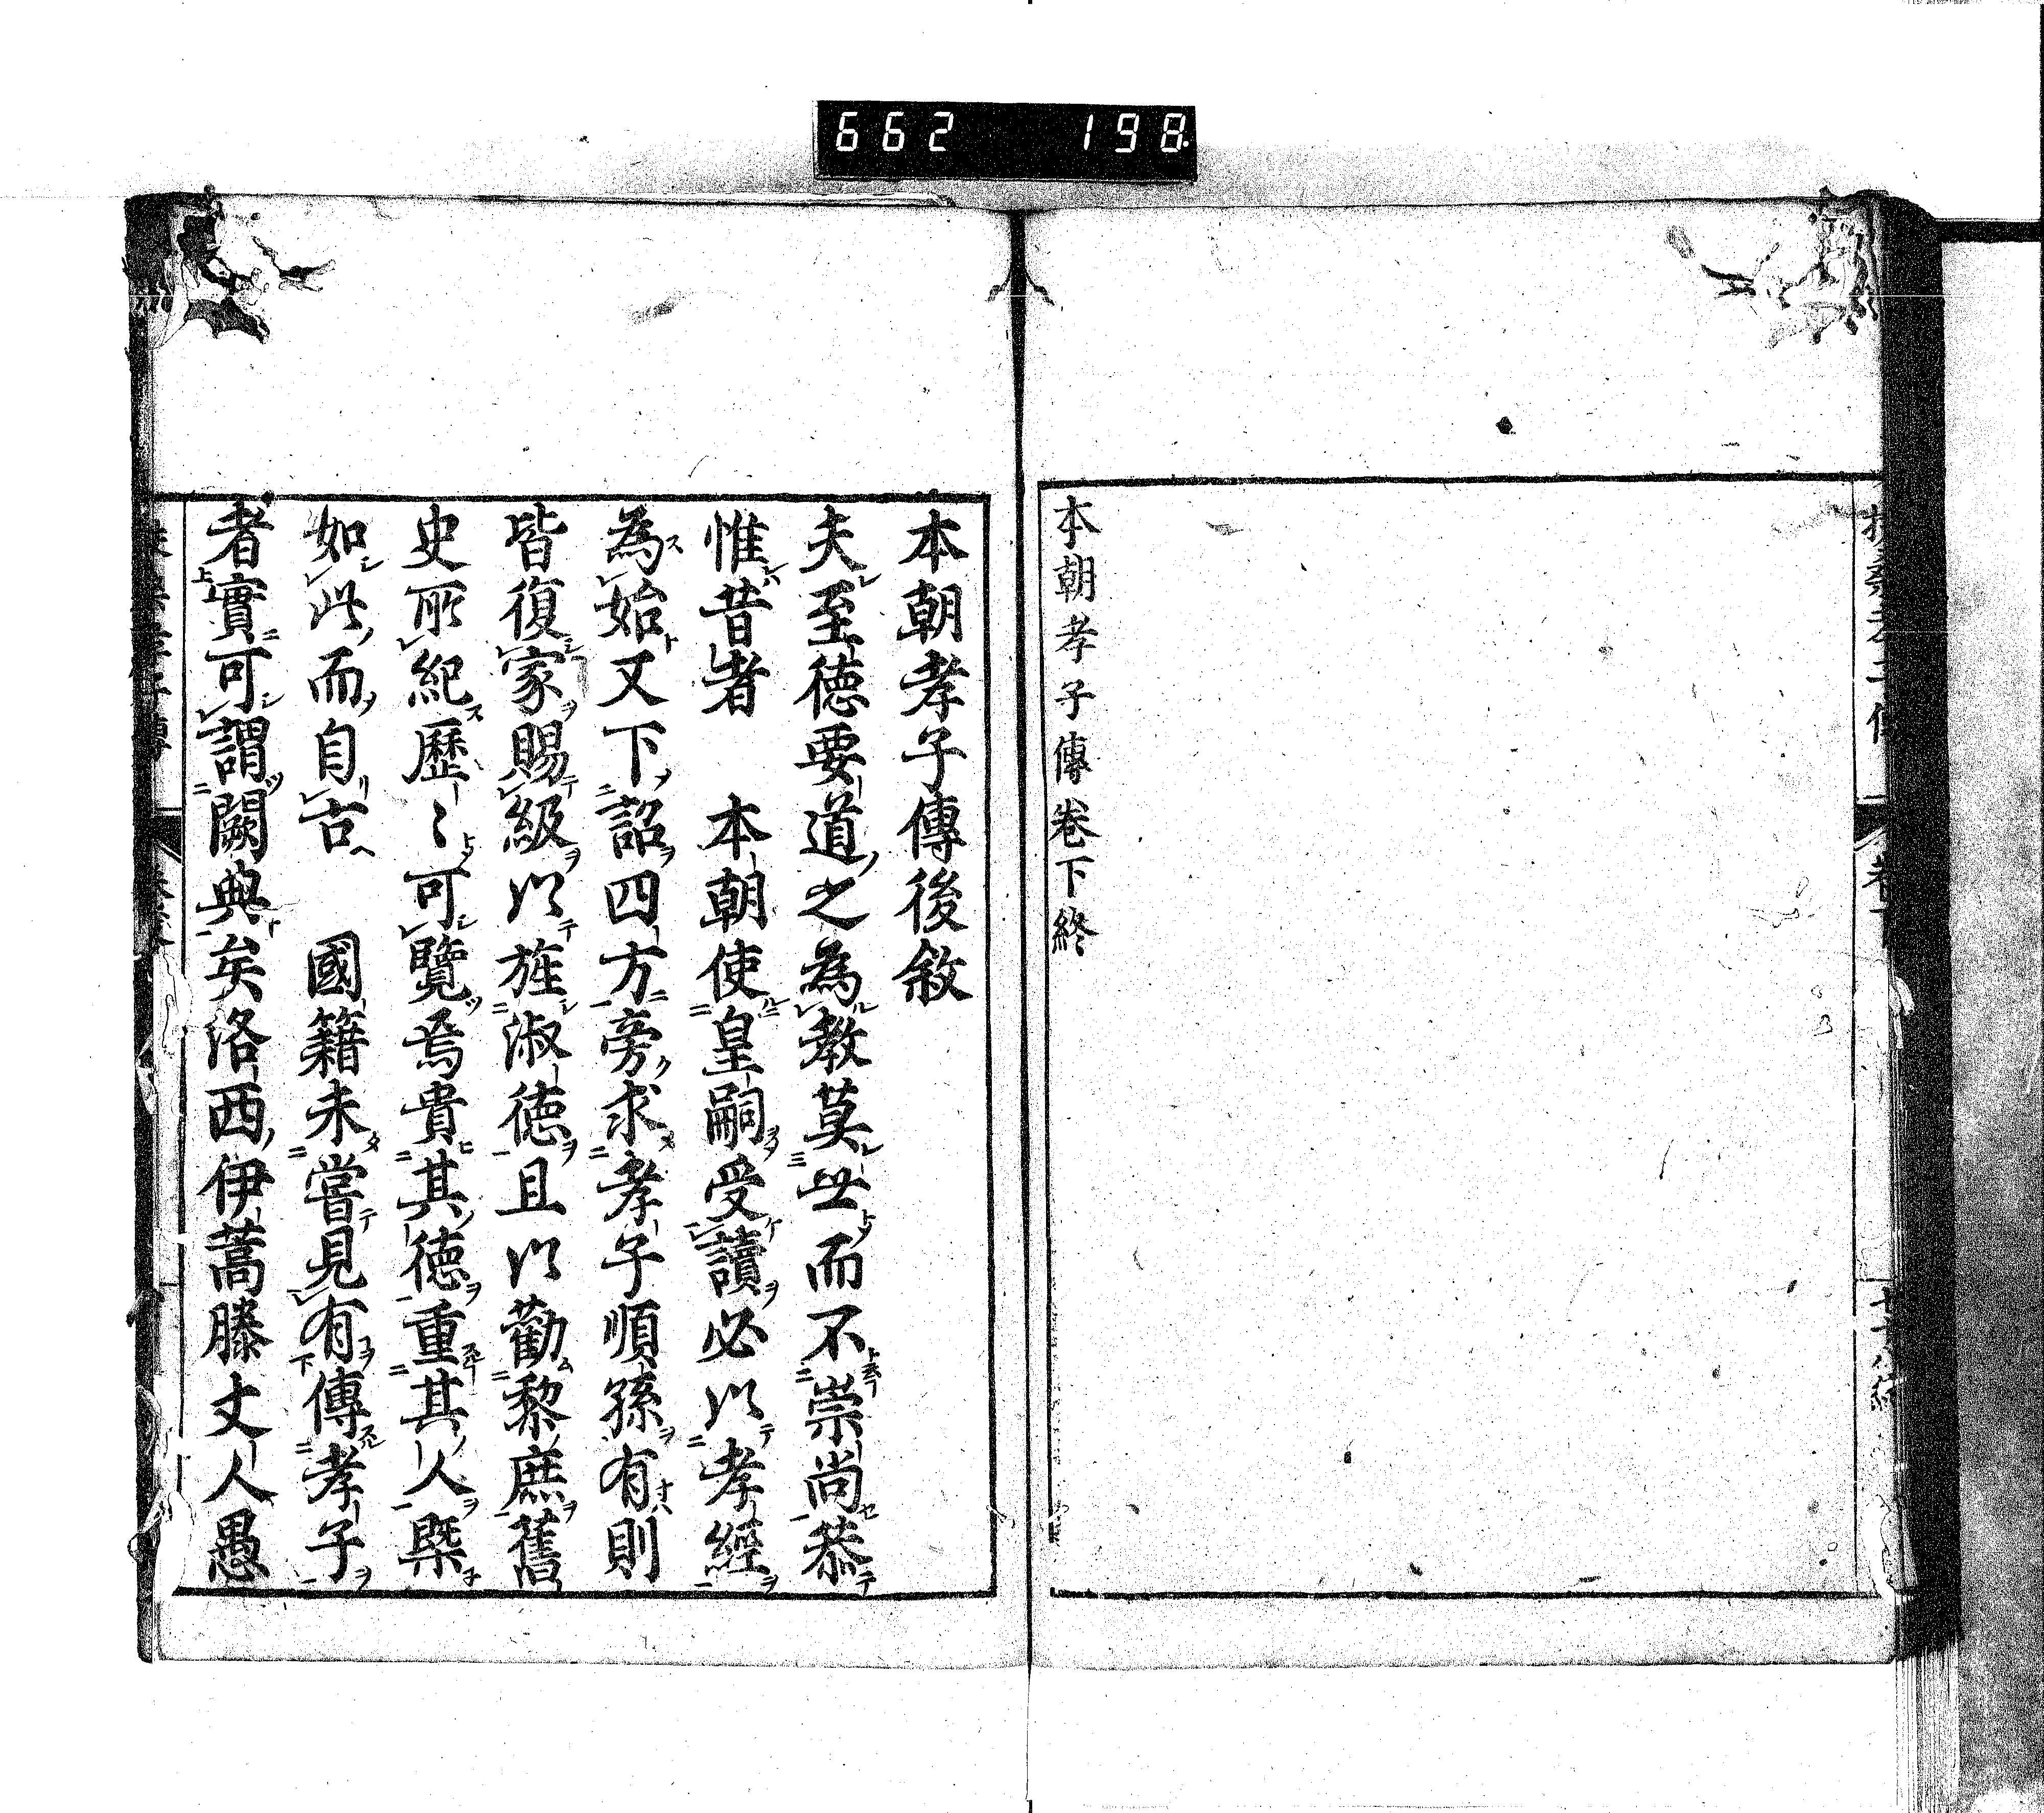 662 198
本朝孝子傳卷下終
本朝孝子傳後敘
夫至德要道之為教莫世而不崇尚恭
惟昔者　本朝使皇嗣受讀必以孝經
為始又下詔四方旁求孝子順孫有則
皆復家賜級以旌淑德且以勸黎庶舊
史所紀歷〻可覽焉貴其德重其人槩
如此而自古　國籍未嘗見有傳孝子
者實可謂闕典矣洛西伊蒿滕丈人愚